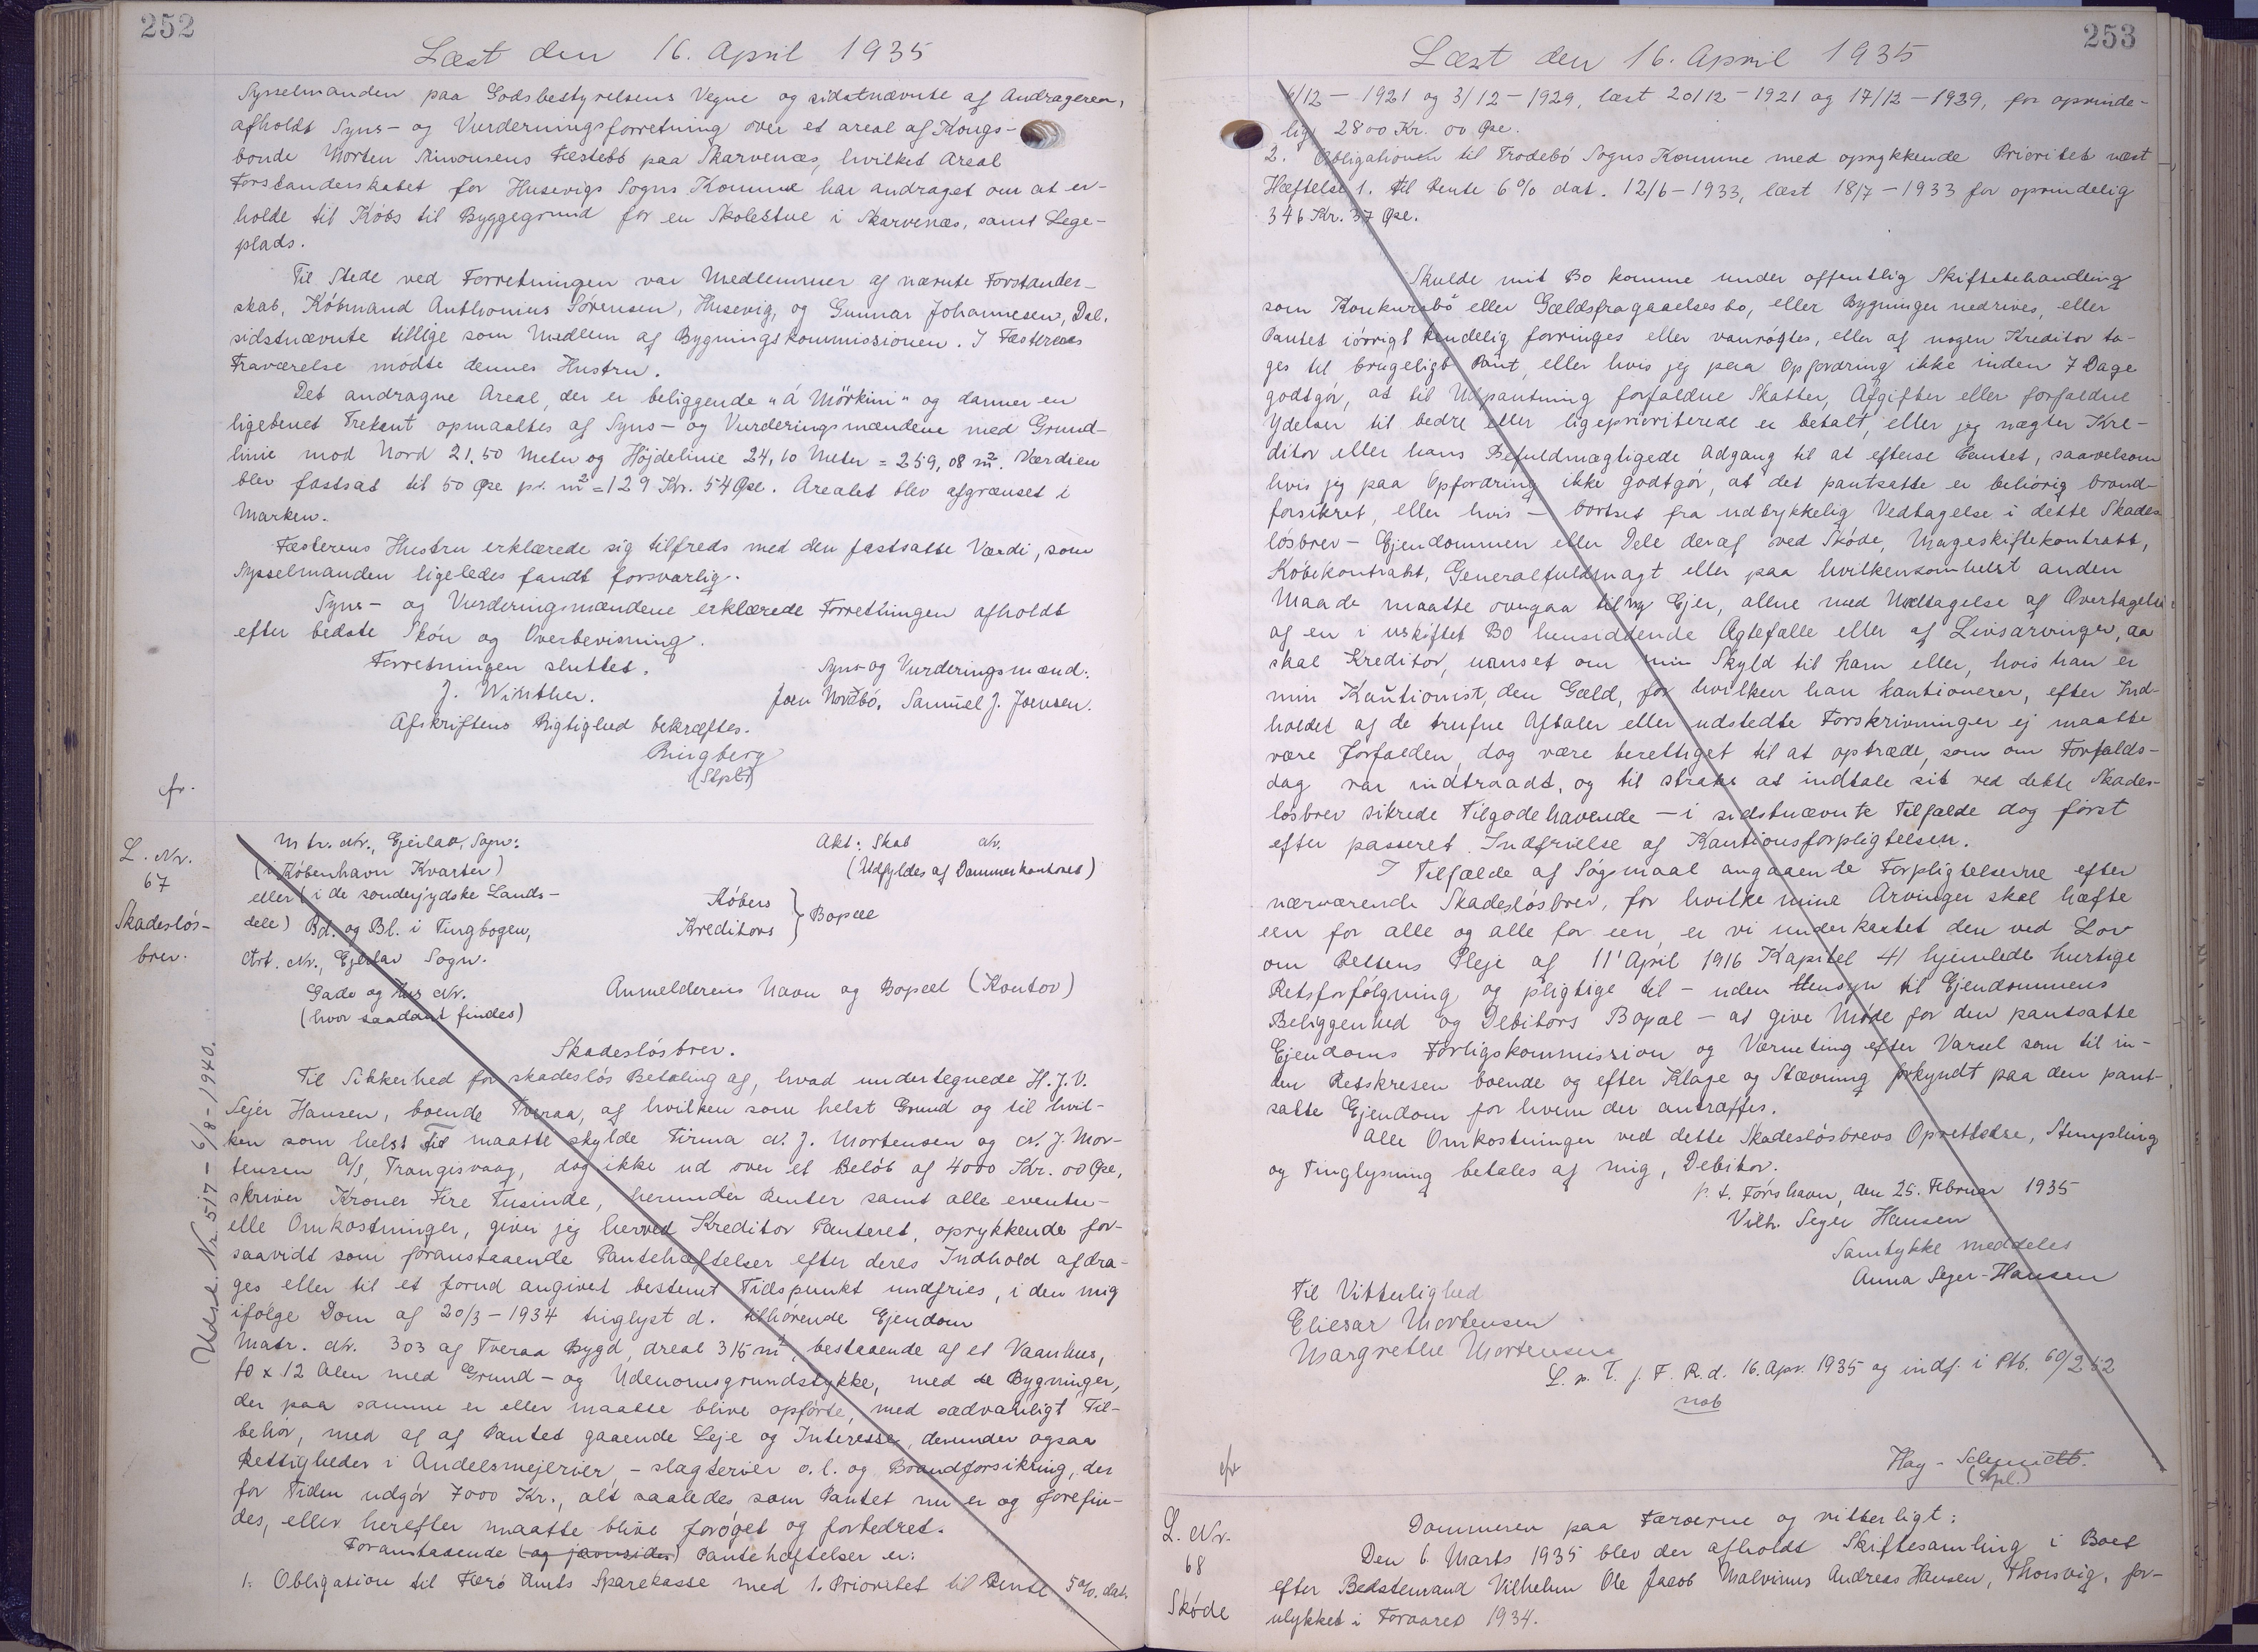 252
Læst den 16. April 1935
Sysselmanden paa Godsbestyrelsens Vegne og sidstnævnte af Andrageren,
afholdt Syns- og Vurderingsforretning over et areal af Kongs-
bonde Morten Simonsens Fæstebb paa Skarvenæs, hvilket Areal
Forstanderskabet for Husevigs Sogns Kommune har andraget om at er-
holde til Købs til Byggegrund for en Skolestue i Skarvenæs, samt Lege-
plads.
Til Stede ved Forretningen var Medlemmer af nævnte Forstander-
skab, Købmand Anthonius Sørensen, Husevig, og Gunnar Johannesen, Dal,
sidstnævnte tillige som Medlem af Bygningskommissionen. I Fæsterens
Fraværelse mødte dennes Hustru.
Det andragne Areal, der er beliggende "á Mörkini" og danner en
ligebenet Trekant opmaaltes af Syns- og Vurderingsmændene med Grund-
linie mod Nord 21,50 Meter og Højdelinie 24,10 Meter = 259,08 m². Værdien
blev fastsat til 50 Øre pr. m² = 129 Kr. 54 Øre. Arealet blev afgrænset i
Marken.
Fæsterens Hustru erklærede sig tilfreds med den fastsatte Værdi, som
Sysselmanden ligeledes fandt forsvarlig.
Syns- og Vurderingsmændene erklærede Forretningen afholdt
efter bedste Skøn og Overbevisning.
Forretningen sluttet.
Syns- og Vurderingsmænd:
J. Winther.
Joen Norðbó. Samuel J. Joensen.
Afskriftens Rigtighed bekræftes.
Ringberg
(Stpl.)
fr.
L. Nr.
67
Skadesløs-
brev.
Mtr. Nr., Ejerlav, Sogn:
(i København Kvarter)
eller (i de sønderjydske Lands-
dele) Bd. og Bl. i Tingbogen,
Art. Nr., Ejerlav Sogn.
Gade og Hus Nr.
(hvor saadant findes)
Akt: Skab Nr.
(Udfyldes af Dommerkontoret)
Købers
Kreditors } Bopæl
Anmelderens Navn og Bopæl (Kontor)
Udsl. Nr. 517 - 6/8 - 1940.
Skadesløsbrev.
Til Sikkerhed for skadesløs Betaling af, hvad undertegnede H. J. V.
Sejer Hansen, boende Tveraa, af hvilken som helst Grund og til hvil-
ken som helst Tid maatte skylde Firma N. J. Mortensen og N. J. Mor-
tensen A/S, Trangisvaag, dog ikke ud over et Beløb af 4000 Kr. 00 Øre,
skriver Kroner Fire Tusinde, herunder Renter samt alle eventu-
elle Omkostninger, giver jeg herved Kreditor Panteret, oprykkende for-
saavidt som foranstaaende Pantehæftelser efter deres Indhold afdra-
ges eller til et forud angivet bestemt Tidspunkt indfries, i den mig
ifølge Dom af 20/3 - 1934 tinglyst d. tilhørende Ejendom
Matr. Nr. 303 af Tveraa Bygd, Areal 315 m², bestaaende af et Vaanhus,
10 x 12 Alen med Grund- og Udenomsgrundstykke, med de Bygninger,
der paa samme er eller maatte blive opførte, med sædvanligt Til-
behør, med af af Pantet gaaende Leje og Interesse, derunder ogsaa
Rettigheder i Andelsmejerier, - slagterier o. l. og Brandforsikring, der
for Tiden udgør 7000 Kr., alt saaledes som Pantet nu er og forefin-
des, eller herefter maatte blive forøget og forbedret.
Foranstaaende (og jævnsides) Pantehæftelser er:
1. Obligation til Færø Amts Sparekasse med 1. Prioritet til Rente 5%. dat.
253
Læst den 16. April 1935
/12 - 1921 og 3/12 - 1929, læst 20/12 - 1921 og 17/12 - 1929, for oprinde-
lig 2800 Kr. 00 Øre.
2. Obligationen til Frodebó Sogns Komme med oprykkende Prioritet næst
Hæftelse 1. til Rente 6% dat. 12/6 - 1933, læst 18/7 - 1933 for oprindelig
346 Kr. 37 Øre.
Skulde mit Bo komme under offentlig Skiftebehandling
som Konkursbo eller Gældsfragaaelsesbo, eller Bygninger nedrives, eller
Pantet iøvrigt kendelig forringes eller vanrøgtes, eller af nogen Kreditor ta-
ges til brugeligt Pant, eller hvis jeg paa Opfordring ikke inden 7 Dage
godtgør, at til Udpantning forfaldne Skatter, Afgifter eller forfaldne
Ydelser til bedre eller ligeprioriterede er betalt, eller jeg nægter Kre-
ditor eller hans Befuldmægtigede Adgang til at efterse Pantet, saavelsom
hvis jeg paa Opfordring ikke godtgør, at det pantsatte er behørig brand-
forsikret, eller hvis - bortset fra udtrykkelig Vedtagelse i dette Skades-
løsbrev - Ejendommen eller Dele deraf ved Skøde, Mageskiftekontrakt,
Købekontrakt, Generalfuldmagt eller paa hvilkensomhelst anden
Maade maatte overgaa til ny Ejer, alene med Undtagelse af Overtagelse
af en i uskiftet Bo hensiddende Ægtefælle eller af Livsarvinger, aa
skal Kreditor, uanset om min Skyld til ham eller, hvis han er
min Kautionist, den Gæld, for hvilken han kautionerer, efter Ind-
holdet af de trufne Aftaler eller udstedte Forskrivninger ej maatte
være forfalden, dog være berettiget til at optræde, som om Forfalds-
dag var indtraadt, og til straks at indtale sit ved dette Skades-
løsbrev sikrede Tilgodehavende - i sidstnævnte Tilfælde dog først
efter passeret Indfrielse af Kautionsforpligtelsen.
I Tilfælde af Søgsmaal angaaende Forpligtelserne efter
nærværende Skadesløsbrev, for hvilke mine Arvinger skal hæfte
een for alle og alle for een, er vi underkastet den ved Lov
om Rettens Pleje af 11' April 1916 Kapitel 41 hjemlede hurtige
Retsforfølgning og pligtige til - uden Hensyn til Ejendommens
Beliggenhed og Debitors Bopæl - at give Møde for den pantsatte
Ejendoms Forligskommission og Værneting efter Varsel som til in-
den Retskresen boende og efter Klage og Stævning forkyndt paa den pant-
satte Ejendom for hvem der antræffes.
Alle Omkostninger ved dette Skadesløsbrevs Oprettelse, Stempling
og Tinglysning betales af mig, Debitor.
p. t. Tórshavn, den 25. Februar 1935
Vilh. Sejer Hansen
Samtykke meddeles
Anna Sejer-Hansen
Til Vitterlighed
Eliesar Mortensen
Margrethe Mortensen
L. p. T. f. F. R. d. 16. Apr. 1935 og indf. i Ptb. 60/252
nob
Hay-Schmidt.
(Stpl.)
fr
L. Nr.
68
Skøde
Dommeren paa Færøerne og vitterligt:
Den 6. Marts 1935 blev der afholdt Skiftesamling i Boet
efter Bedstemand Vilhelm Ole Jacob Malvinus Andreas Hansen, Thorsvig, for-
ulykket i Foraaret 1934.